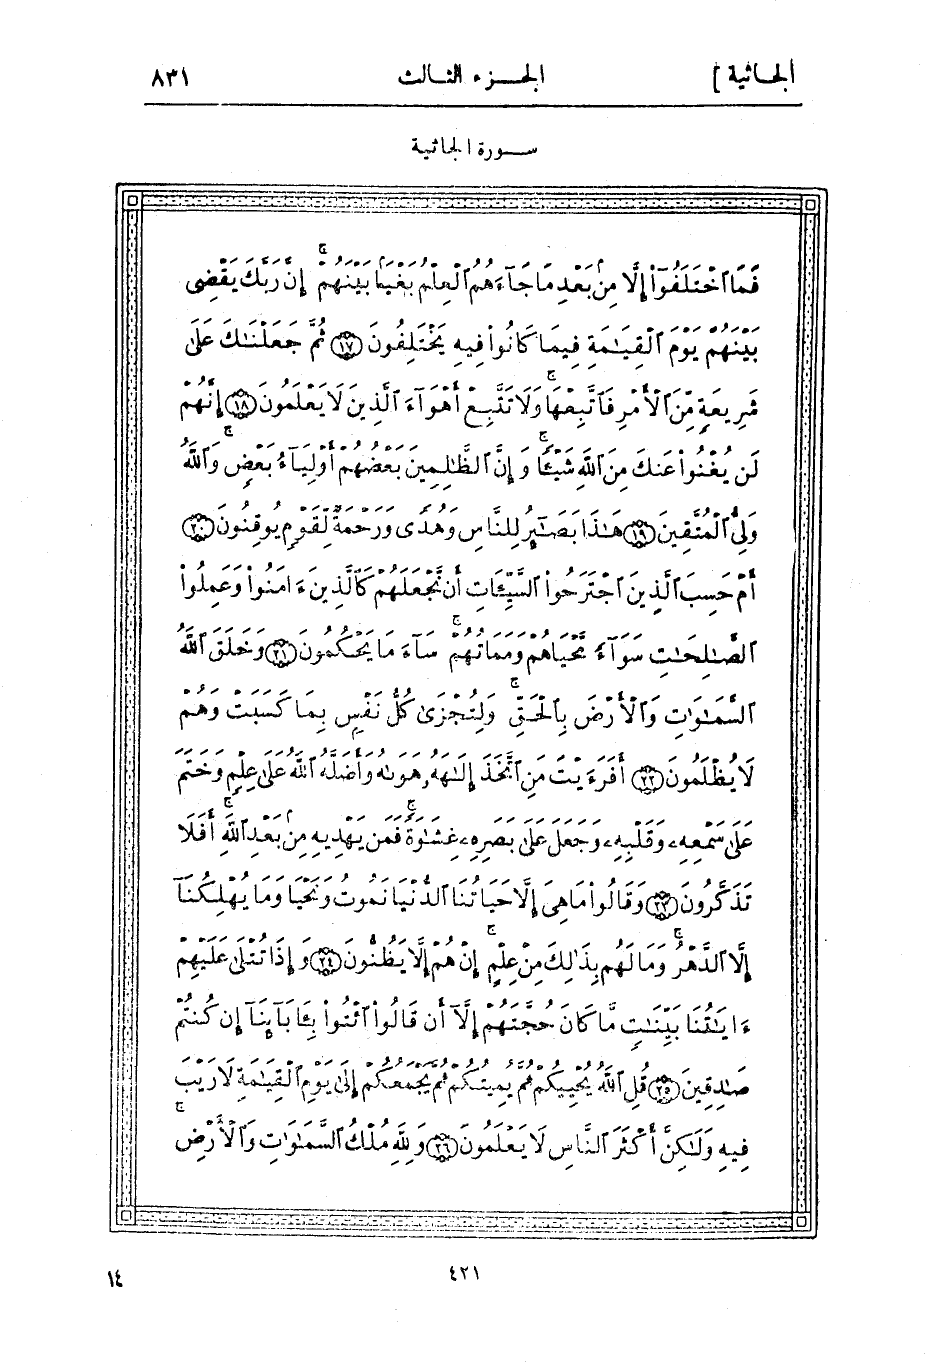 الجاثية ] الجزء الثالث ٨٣١
سورة الجاثية
فَمَا ٱخْتَلَفُوٓا۟ إِلَّا مِنۢ بَعْدِ مَا جَآءَهُمُ ٱلْعِلْمُ بَغْيًۢا بَيْنَهُمْ ۚ إِنَّ رَبَّكَ يَقْضِى
بَيْنَهُمْ يَوْمَ ٱلْقِيَـٰمَةِ فِيمَا كَانُوا۟ فِيهِ يَخْتَلِفُونَ ١٧ ثُمَّ جَعَلْنَـٰكَ عَلَىٰ
شَرِيعَةٍ مِّنَ ٱلْأَمْرِ فَٱتَّبِعْهَا وَلَا تَتَّبِعْ أَهْوَآءَ ٱلَّذِينَ لَا يَعْلَمُونَ ١٨ إِنَّهُمْ
لَن يُغْنُوا۟ عَنكَ مِنَ ٱللَّهِ شَيْـًٔا ۚ وَإِنَّ ٱلظَّـٰلِمِينَ بَعْضُهُمْ أَوْلِيَآءُ بَعْضٍ ۖ وَٱللَّهُ
وَلِىُّ ٱلْمُتَّقِينَ ١٩ هَـٰذَا بَصَـٰٓئِرُ لِلنَّاسِ وَهُدًى وَرَحْمَةٌ لِّقَوْمٍ يُوقِنُونَ ٢٠
أَمْ حَسِبَ ٱلَّذِينَ ٱجْتَرَحُوا۟ ٱلسَّيِّـَٔاتِ أَن نَّجْعَلَهُمْ كَٱلَّذِينَ ءَامَنُوا۟ وَعَمِلُوا۟
ٱلصَّـٰلِحَـٰتِ سَوَآءً مَّحْيَاهُمْ وَمَمَاتُهُمْ ۚ سَآءَ مَا يَحْكُمُونَ ٢١ وَخَلَقَ ٱللَّهُ
ٱلسَّمَـٰوَٰتِ وَٱلْأَرْضَ بِٱلْحَقِّ ۚ وَلِتُجْزَىٰ كُلُّ نَفْسٍۭ بِمَا كَسَبَتْ وَهُمْ
لَا يُظْلَمُونَ ٢٢ أَفَرَءَيْتَ مَنِ ٱتَّخَذَ إِلَـٰهَهُۥ هَوَىٰهُ وَأَضَلَّهُ ٱللَّهُ عَلَىٰ عِلْمٍ وَخَتَمَ
عَلَىٰ سَمْعِهِۦ وَقَلْبِهِۦ وَجَعَلَ عَلَىٰ بَصَرِهِۦ غِشَـٰوَةً فَمَن يَهْدِيهِ مِنۢ بَعْدِ ٱللَّهِ ۚ أَفَلَا
تَذَكَّرُونَ ٢٣ وَقَالُوا۟ مَا هِىَ إِلَّا حَيَاتُنَا ٱلدُّنْيَا نَمُوتُ وَنَحْيَا وَمَا يُهْلِكُنَآ
إِلَّا ٱلدَّهْرُ ۚ وَمَا لَهُم بِذَٰلِكَ مِنْ عِلْمٍ ۚ إِنْ هُمْ إِلَّا يَظُنُّونَ ٢٤ وَإِذَا تُتْلَىٰ عَلَيْهِمْ
ءَايَـٰتُنَا بَيِّنَـٰتٍ مَّا كَانَ حُجَّتَهُمْ إِلَّآ أَن قَالُوا۟ ٱئْتُوا۟ بِـَٔابَآئِنَآ إِن كُنتُمْ
صَـٰدِقِينَ ٢٥ قُلِ ٱللَّهُ يُحْيِيكُمْ ثُمَّ يُمِيتُكُمْ ثُمَّ يَجْمَعُكُمْ إِلَىٰ يَوْمِ ٱلْقِيَـٰمَةِ لَا رَيْبَ
فِيهِ وَلَـٰكِنَّ أَكْثَرَ ٱلنَّاسِ لَا يَعْلَمُونَ ٢٦ وَلِلَّهِ مُلْكُ ٱلسَّمَـٰوَٰتِ وَٱلْأَرْضِ ۚ
٤٢١ ١٤